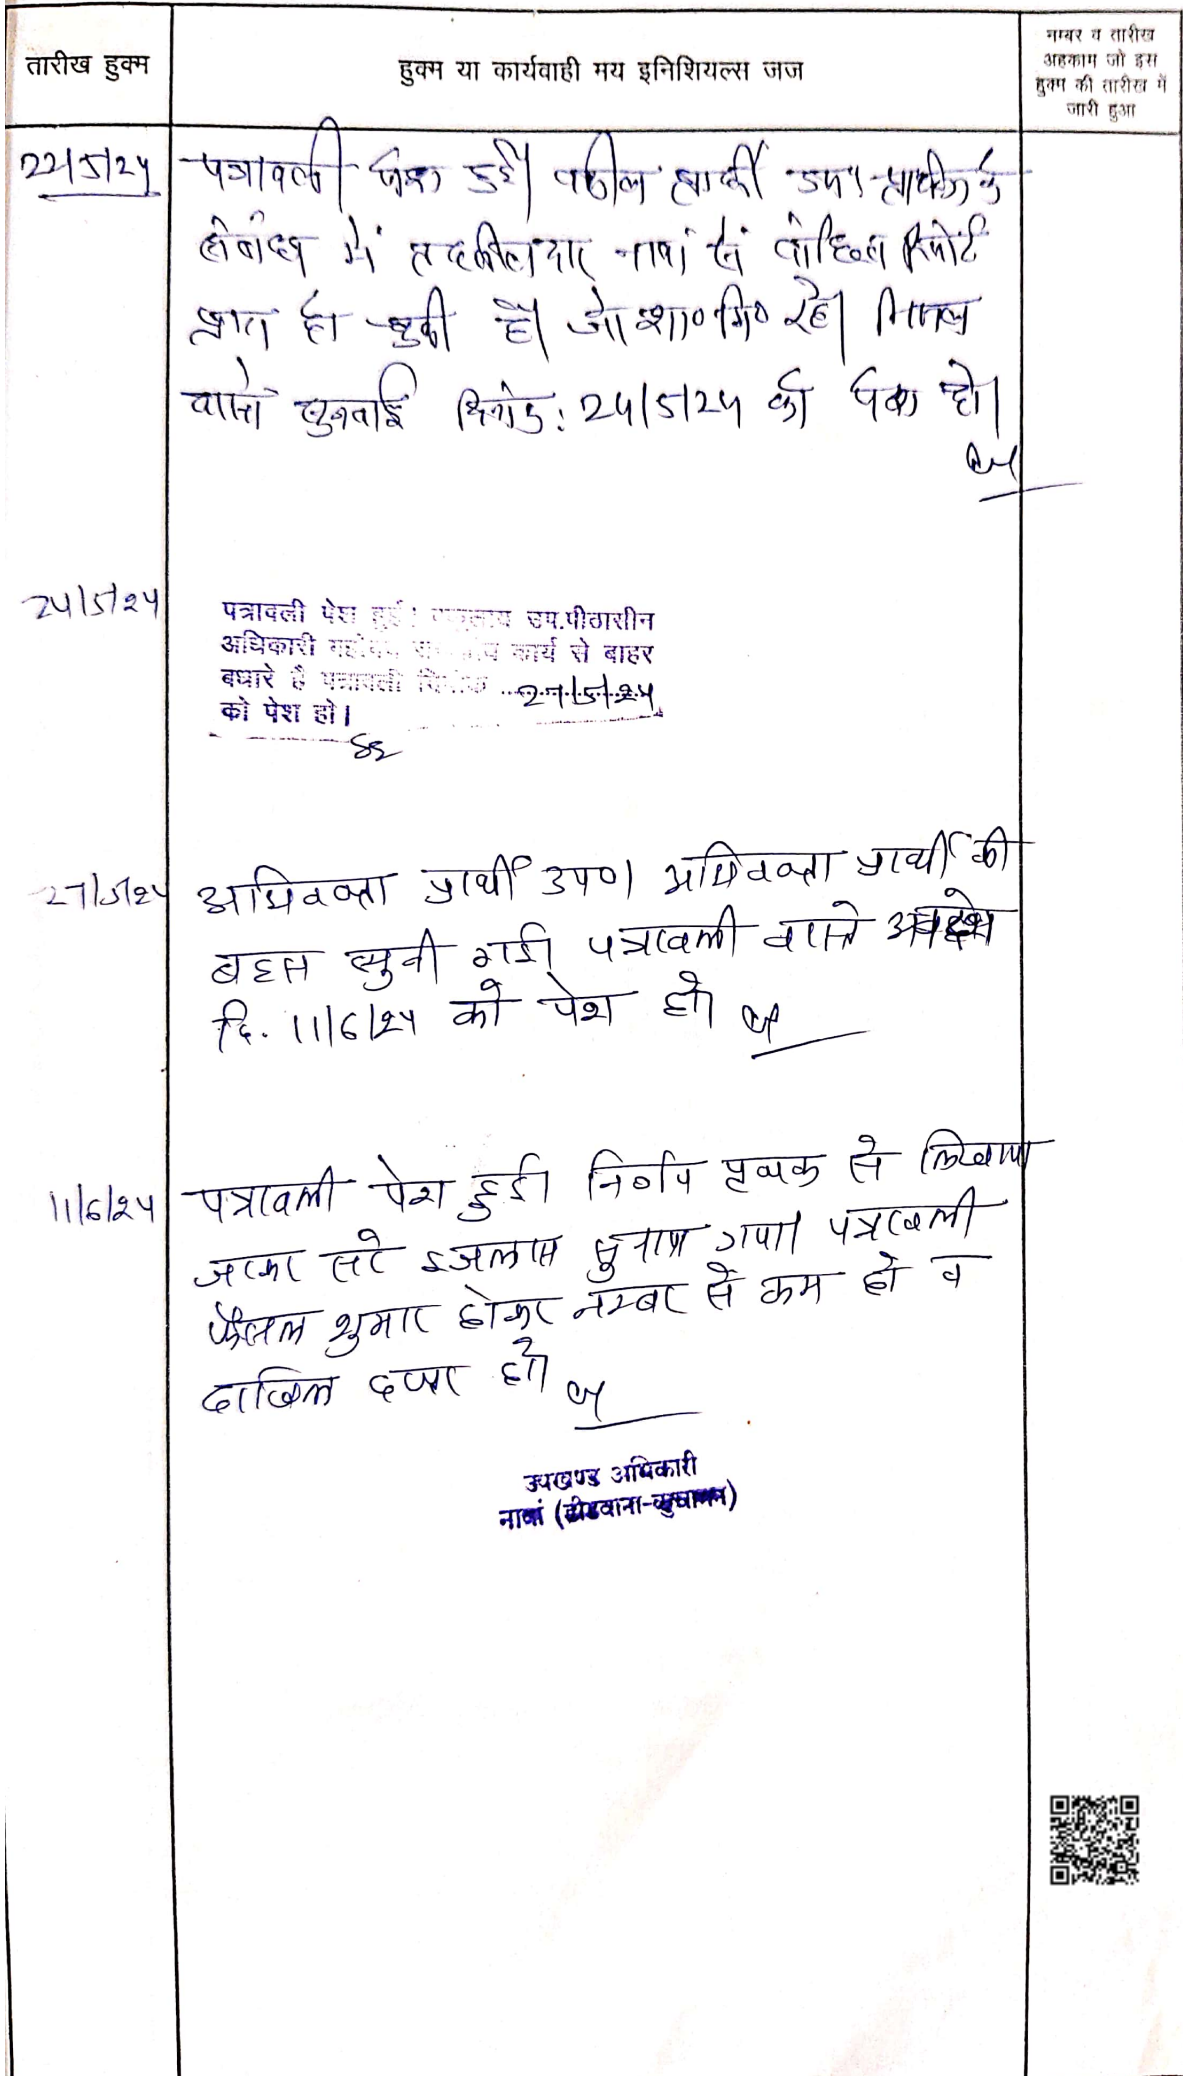 तारीख हुक्म
हुक्म या कार्यवाही मय इनिशियल्स जज
नम्बर व तारीख
अहकाम जो इस
हुक्म की तारीख में
जारी हुआ
22/5/24 पत्रावली पेश हुई। वकील प्रार्थी उप।
में तहसीलदार नावां से रिपोर्ट
प्राप्त हो चुकी है। रहे। मिसल
वास्ते सुनवाई दिनांक: 24/5/24 को पेश हो।
24/5/24
पत्रावली पेश हुई। पीठासीन
अधिकारी महोदय कार्य से बाहर
पधारे है पत्रावली दिनांक 27/5/24
को पेश हो।
27/5/24 अभिवक्ता प्रार्थी उप०। अभिवक्ता प्रार्थी की
बहस सुनी गई। पत्रावली वास्ते
दि. 11/6/24 को पेश हो।
11/6/24 पत्रावली पेश हुई। निर्णय पृथक से लिखाया
जाकर सरे इजलास सुनाया गया। पत्रावली
फैसल शुमार होकर नम्बर से कम हो व
दाखिल दफ्तर हो।
उपखण्ड अधिकारी
नावां (डीडवाना-कुचामन)